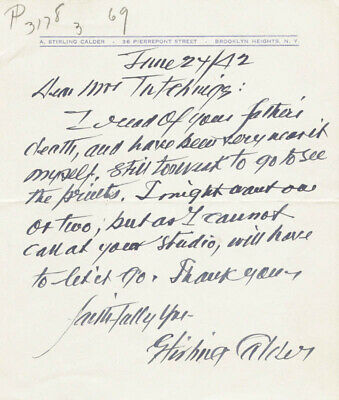 P 3178 3 69
A. STIRLING CALDER · 36 PIERREPONT STREET · BROOKLYN HEIGHTS, N. Y.
June 24/42
Dear Mrs Tutchings:
I read of your father's
death, and have been very near it
myself. Still too weak to go to see
the prints. I might want one
or two, but as I cannot
call at your studio, will have
to let it go. Thank you
faithfully Yrs
Stirling Calder